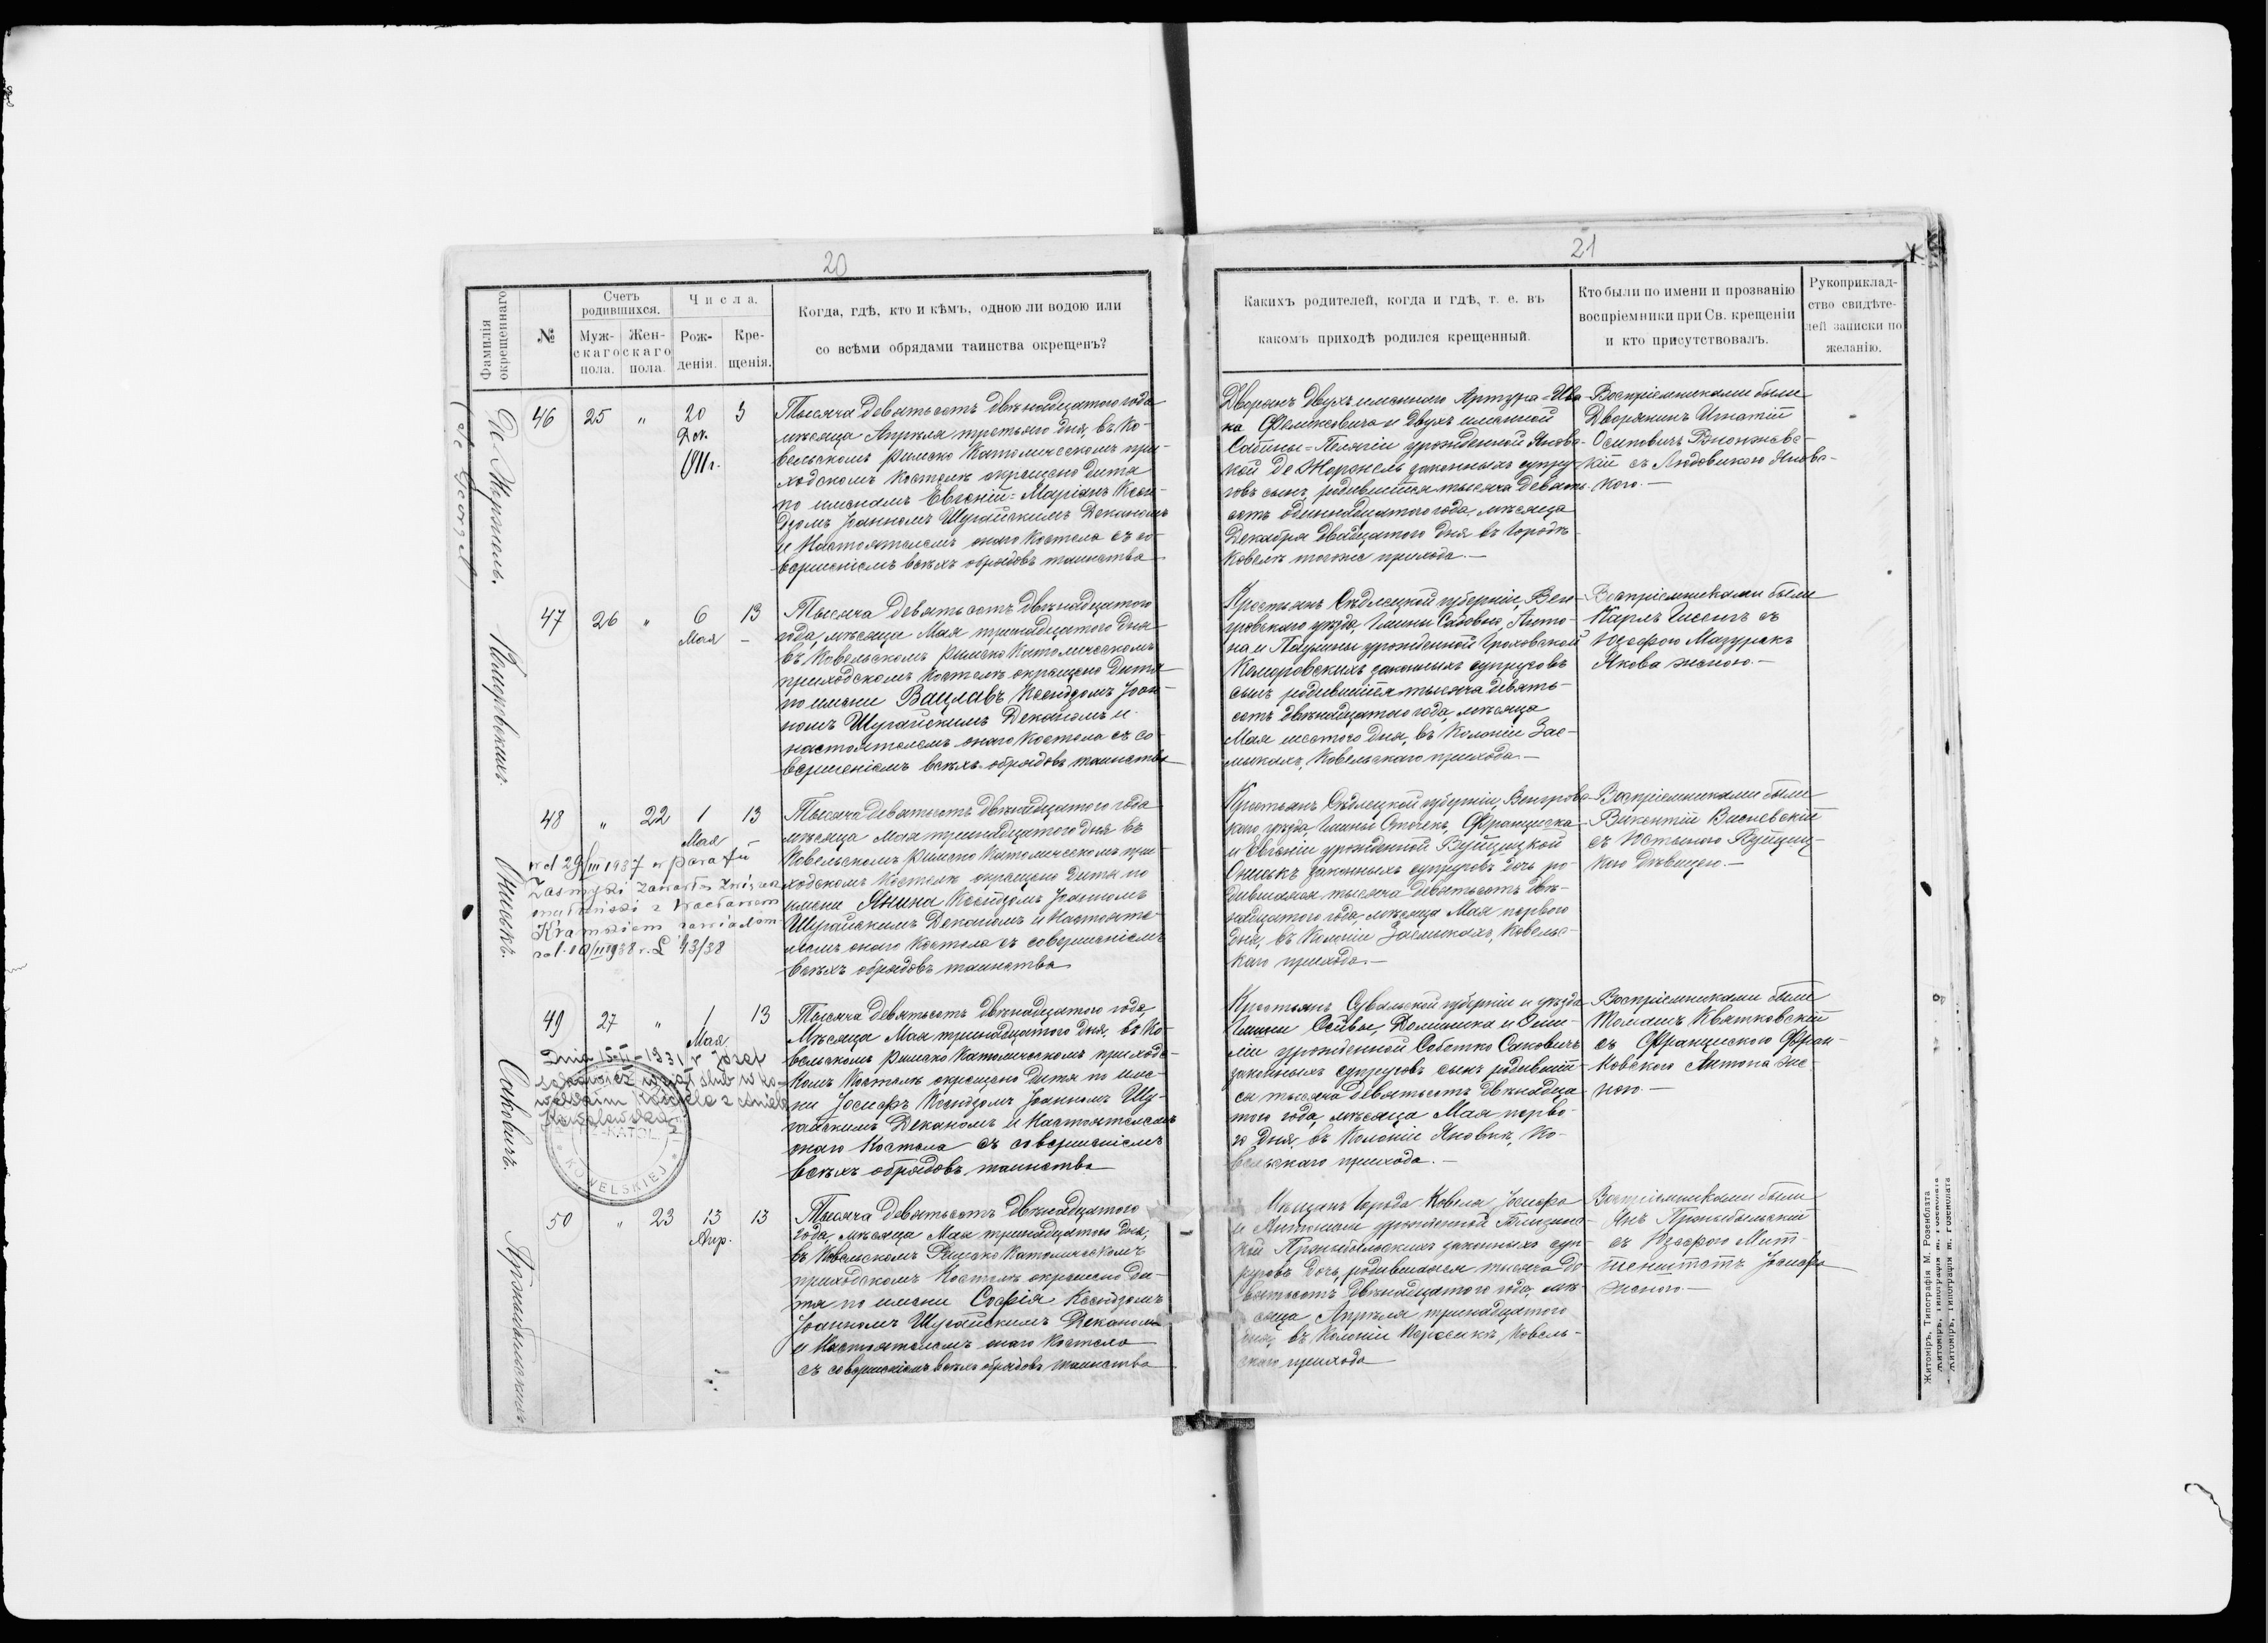 20
Фамилія окрещеннаго
№
Счетъ родившихся.
Мужскаго пола.
Женскаго пола.
Числа.
Рожденія.
Крещенія.
Когда, гдѣ, кто и кѣмъ, одною ли водою или
со всѣми обрядами таинства окрещенъ?
Де Жоржель.
46
25
"
20
Дек.
1911г.
3
Тысяча девятьсотъ двѣнадцатого года
мѣсяца Апрѣля третьяго дня, въ Ко-
вельскомъ Римско Католическомъ при-
ходскомъ Костелѣ окрещено дитя
по именамъ Евгеній=Маріанъ Ксен-
дзомъ Іоанномъ Шугайскимъ Деканомъ
и Настоятелемъ онаго Костела съ со-
вершеніемъ всѣхъ обрядовъ таинства
47
26
"
6
Мая
13
–
Тысяча девятьсотъ двѣнадцатого
года, мѣсяца Мая тринадцатого дня
въ Ковельскомъ Римско Католическомъ
приходскомъ Костелѣ окрещено дитя
по имени Вацлавъ Ксендзомъ Іоан-
номъ Шугайскимъ Деканомъ и
настоятелемъ онаго Костела съ со-
вершеніемъ всѣхъ обрядовъ таинства
Онисекъ.
48
"
22
1
Мая
13
–
29/III 1937 w parafii
Zasmyki zawarła związek
małżeński z Wacławem
Тысяча девятьсотъ двѣнадцатого года
мѣсяца Мая тринадцатого дня въ
Ковельскомъ Римско Католическомъ при-
ходскомъ Костелѣ окрещено дитя по
имени Янина Ксендзомъ Іоанномъ
Шугайскимъ Деканомъ и Настояте-
лемъ онаго Костела съ совершеніемъ
всѣхъ обрядовъ таинства
Саковичъ.
49
27
"
1
Мая
13
1931 r. Józef
KATOL.
KOWELSKIEJ
Тысяча девятьсотъ двѣнадцатого года,
Мѣсяца Мая тринадцатого дня, въ Ко-
вельскомъ Римско Католическомъ приходс-
комъ Костелѣ окрещено дитя по име-
ни Іосифъ Ксендзомъ Іоанномъ Шу-
гайскимъ Деканомъ и Настоятелемъ
онаго Костела съ совершеніемъ
всѣхъ обрядовъ таинства
50
"
23
13
Апр.
13
Тысяча девятьсотъ двѣнадцатого
года, мѣсяца Мая тринадцатого дня,
въ Ковельскомъ Римско Католическомъ
приходскомъ Костелѣ окрещено ди-
тя по имени Софія Ксендзомъ
Іоанномъ Шугайскимъ Деканомъ
и Настоятелемъ онаго Костела
съ совершеніемъ всѣхъ обрядовъ таинства
21
Какихъ родителей, когда и гдѣ, т. е. въ
какомъ приходѣ родился крещенный.
Кто были по имени и прозванію
воспріемники при Св. крещеніи
и кто присутствовалъ.
Рукоприклад-
ство свидѣте-
лей записки по
желанію.
Дворянъ Двухъименнаго Артура=Ива-
на Феликсовича и Двухъименной
Сабины=Пелягіи урожденной
Де Жоржель законныхъ супру-
говъ сынъ, родившійся тысяча девять-
сотъ одиннадцатого года, мѣсяца
Декабря двадцатого дня въ городѣ
Ковелѣ тогоже прихода.–
Воспріемниками были
Дворянинъ Игнатій
Осиповичъ
кій съ Людовикою
Крестьянъ Сѣдлецкой губерніи, Вен-
гровскаго уѣзда, Гмины Садовно, Анто-
на и Паулины урожденной Гроховской
законныхъ супруговъ
сынъ родившійся тысяча девять-
сотъ двѣнадцатого года, мѣсяца
Мая шестого дня, въ Колоніи Зас-
мыкахъ, Ковельскаго прихода.–
Воспріемниками были
Карлъ съ
Юзефою Мазурекъ
Якова женою.–
Крестьянъ Сѣдлецкой губерніи, Венгровс-
каго уѣзда, Гмины Сточекъ, Франциска
и Евгеніи урожденной Вуйцицкой
Онисекъ законныхъ супруговъ дочь ро-
дившаяся тысяча девятьсотъ двѣ-
надцатого года, мѣсяца Мая перваго
дня, въ Колоніи Засмыкахъ, Ковельс-
каго прихода.–
Воспріемниками были
Викентій Висневскій
съ Вуйциц-
кою дѣвицею.–
Крестьянъ Сувалькой губерніи и уѣзда
Гмины Доминика и Эми-
ліи урожденной Соботко Саковичъ
законныхъ супруговъ сынъ родившій-
ся тысяча девятьсотъ двѣнадца-
того года, мѣсяца Мая перва-
го дня, въ Колоніи Яновкѣ, Ко-
вельскаго прихода.–
Воспріемниками были
Томашъ Квятковскій
съ Францискою
Антона же-
ною.–
Мѣщанъ города Ковеля, Іосифа
и Антонины урожденной
законныхъ суп-
руговъ дочь, родившаяся тысяча де-
вятьсотъ двѣнадцатого года, мѣ-
сяца Апрѣля тринадцатого
дня, въ Колоніи Ковель-
скаго прихода
Воспріемниками были
Янъ
съ Юзефою
Іосифа
женою.–
Житоміръ, Типографія М. Розенблата